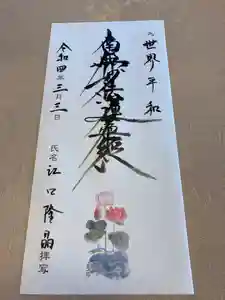 世界平和
南無妙法蓮華経
令和四年三月三日
氏名 江口隆晶 拝写